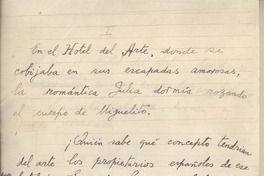 I
En el Hotel del Arte, donde se
cobijaba en sus escapadas amorosas,
la romántica Julia dormía rozando
el cuerpo de Miguelito.
¡Quién sabe qué concepto tendrían
del arte los propietarios españoles de ese